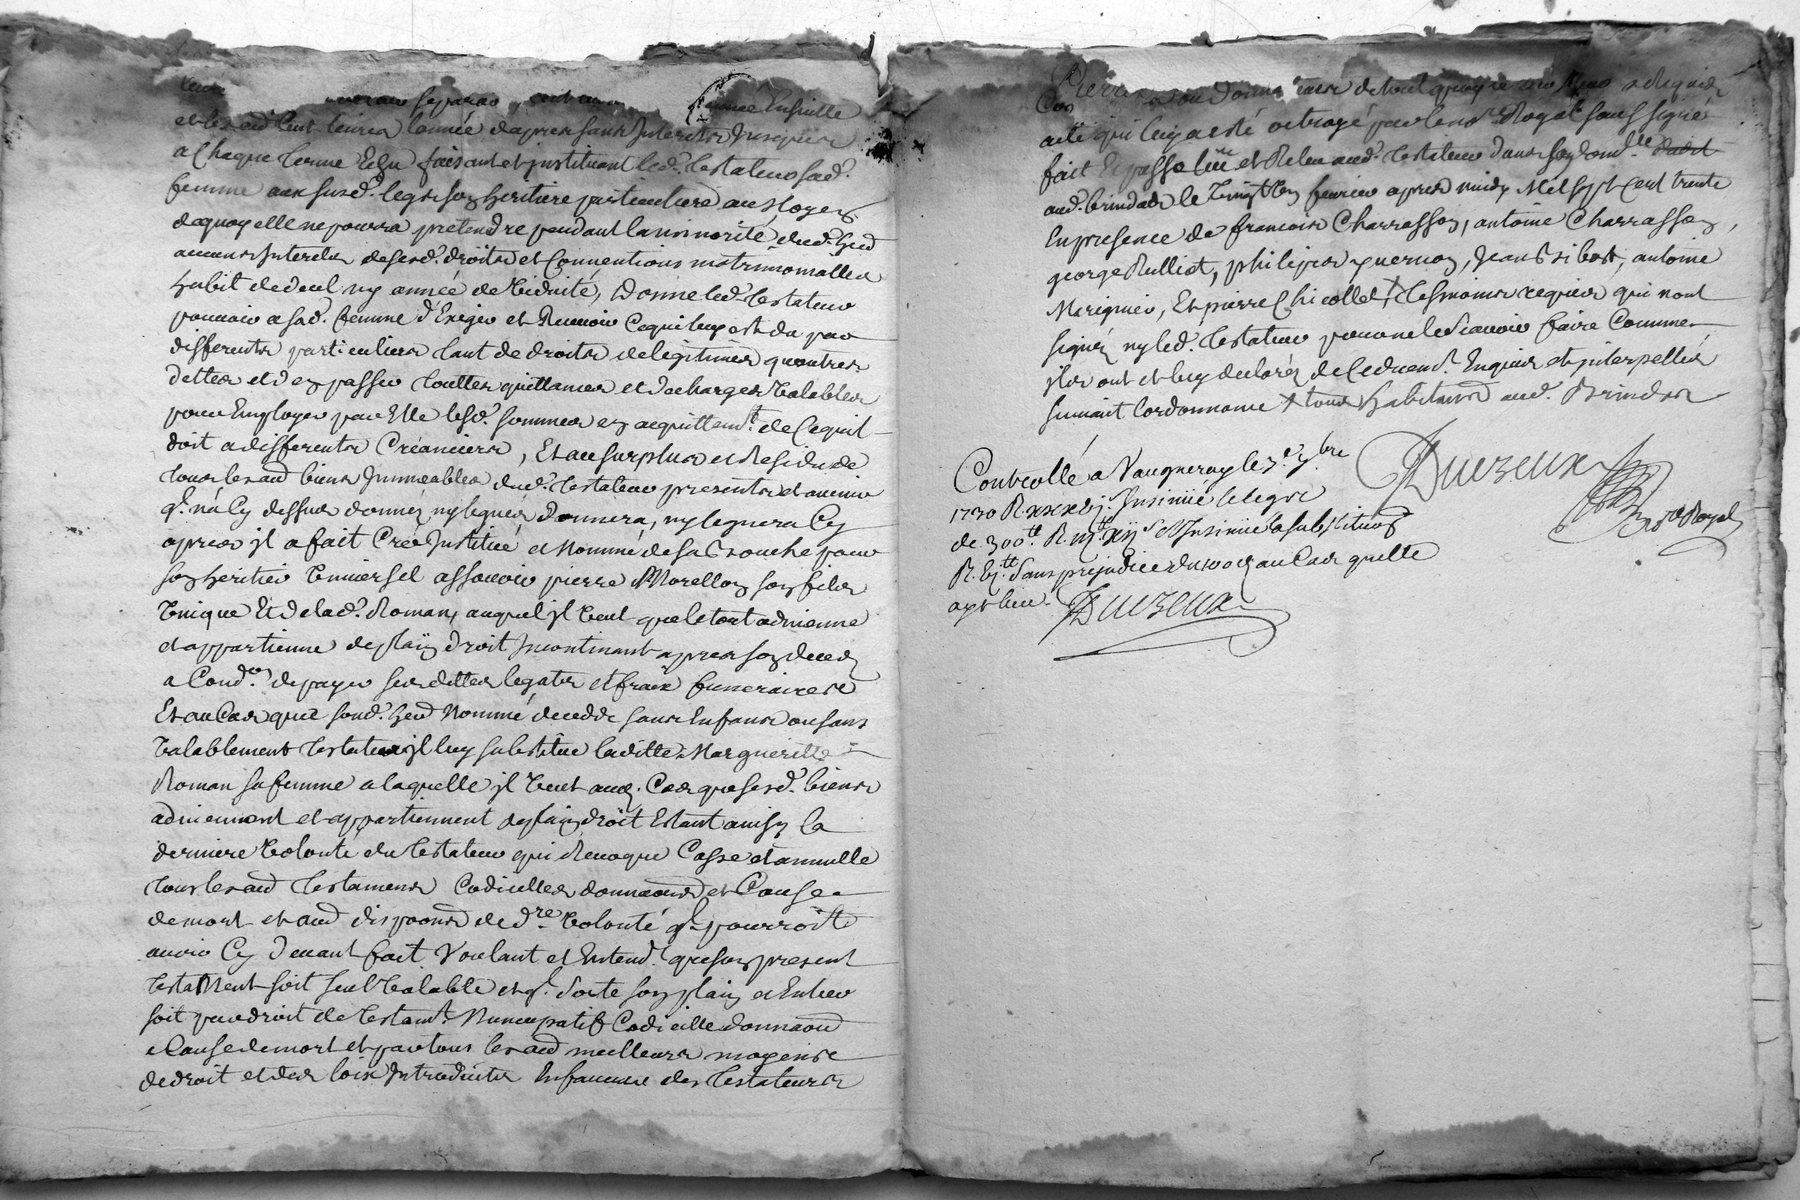 année Ensuitte
et les autr. Cent livres l'année d'apres sans Interests Jusques
a Chaque terme Echu faisant et instituant led. testateur sad.
femme aux susd. legs son heritiere particuliere au moyen
dequoy elle ne pourra pretendre pendant la minorité dud. hered
aucuns Interests de sesd. droits et Conventions matrimonialles
habit de deul ny année de viduité, Donne led. testateur
pouvoir a sad. femme d'Exiger et Recevoir Ce qui luy est du par
differents particuliers tant de droits de legitimes qu'autres
dettes et d'en passer touttes quittances et decharges valables
pour Employer par Elle lesd. sommes en acquittemt. de Ce quil
doit a differents Créanciers, Et au surplus et Residu de
tous les aud biens Immeubles dud. testateur presents et avenir
qt. n'a Cy dessus donnés ny legués Donnera, ny leguera Cy
apres il a fait Créé Institué et Nommé de sa bouche pour
son heritier Universel assavoir pierre Morellon son fils
Unique Et de lad. Roman, auquel il veut que le tout advienne
et appartienne de plain droit Incontinant apres son deced
a Condon. de payer ses dettes legats et fraix funeraires
Et au Cas que sond. hered Nommé decedde sans Enfans ou sans
valablement tester il luy substitue laditte Margueritte
Roman sa femme a laquelle il veut aud. Cas que sesd. biens
adviennent et appartiennent de plain droit Estant ainsy la
derniere volonté du testateur qui Revoque Casse et annulle
tous les aud testamens Codicilles donnaons et Cause
de mort et aud dispoons de dre. volonté ql. pourroit
avoir Cy devant fait Voulant et Entend. que son present
testament soit seul valable et ql. sorte son plain et Entier
soit par droit de testamt. Nuncupatif Codicille donnaon
a Cause de mort et par tous les aud meilleurs moyens
de droit et des loix Introduites En faveur des testateurs
acte qui luy a esté octroyé par le nore. Royal sousigné
fait Et passé leu et Releu aud. testateur dans son domlle.
aud. brindas le vingt fevrier apres midy Mil sept cent trente
En presence de françois Charrasson, antoine Charrasson,
george Rulliat, philipes quernon, Jean Sibert, antoine
Marignier, Et pierre Chicollet + tesmoins requis qui n'ont
signés ny led. testateur pour ne le scavoir faire Comme
ils ont et luy declarés de Ce duemt. Enquis et interpellés
suivant l'ordonnance + tous habitans aud. Brindas
Duezeux
nore Royal
Controllé a Vaugneray le 3e. 7bre
1730 R xxxvj s. Insinué le legs
de 300 tt R. et Insinué la substituon
R. sans prejudice du au Cas quelle
aye lieu. Duezeux